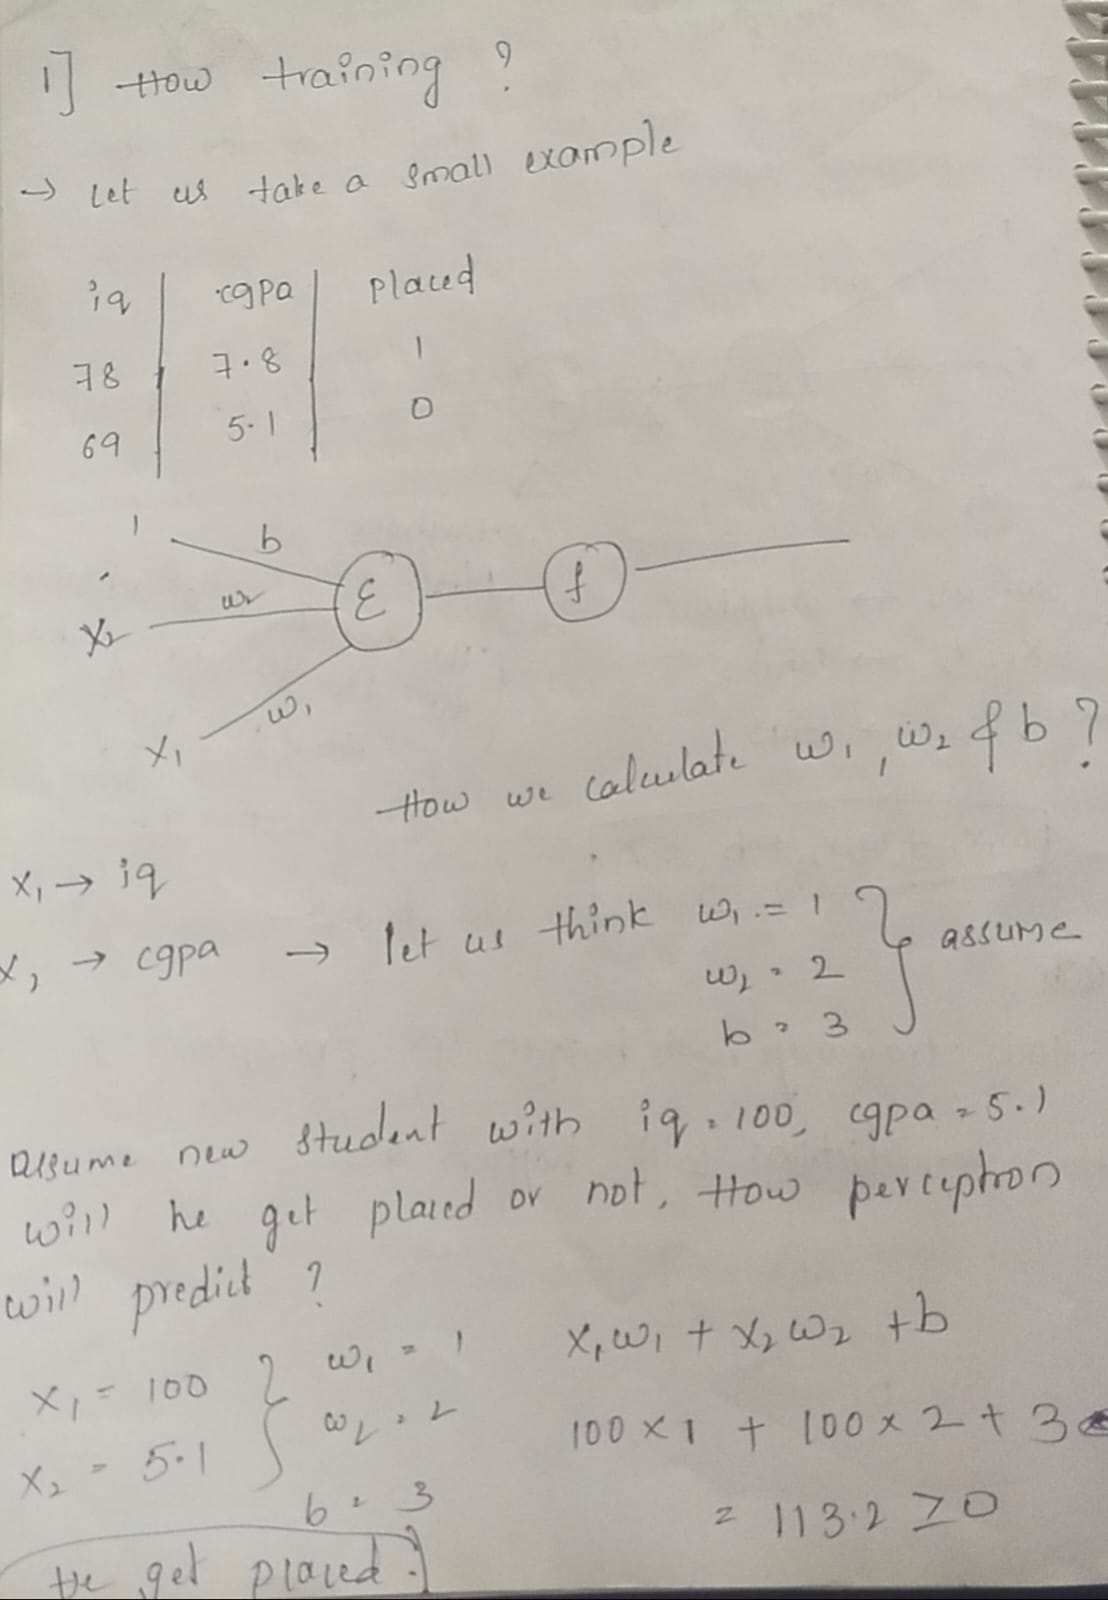 1] How training ?
→ Let us take a small example
iq | cgpa | placed
78 | 7.8 | 1
69 | 5.1 | 0
1 b
x2 w2 Σ f
x1 w1
How we calculate w1, w2 & b ?
x1 → iq
x2 → cgpa → let us think w1 = 1 } assume
w2 = 2
b = 3
Assume new student with iq = 100, cgpa = 5.1
will he get placed or not, How perceptron
will predict ?
x1 = 100 } w1 = 1 x1w1 + x2w2 + b
x2 = 5.1 w2 = 2 100 x 1 + 100 x 2 + 3
b = 3 = 113.2 ≥ 0
He get placed.